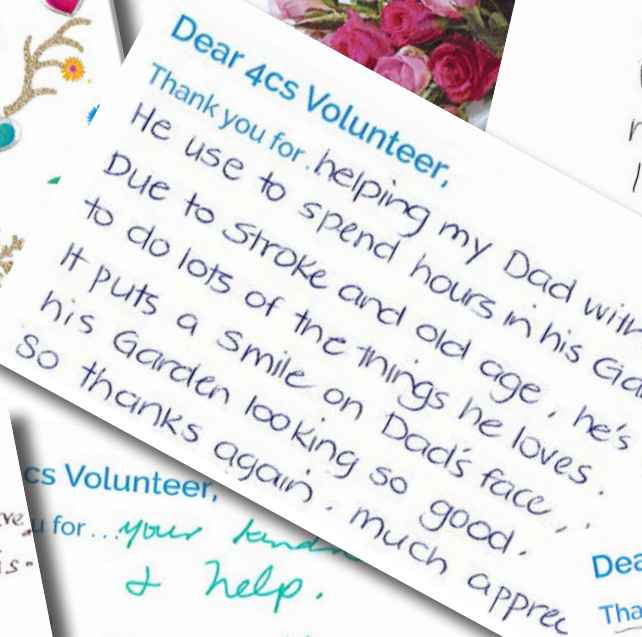 Dear 4cs Volunteer,
Thank you for. helping my Dad with
He use to spend hours in his Ga
Due to stroke and old age, he's
to do lots of the things he loves.
It puts a smile on Dad's face,
his Garden looking so good.
So thanks again. much apprec
cs Volunteer,
u for... your
& help.
ve
is.
Dea
Tha